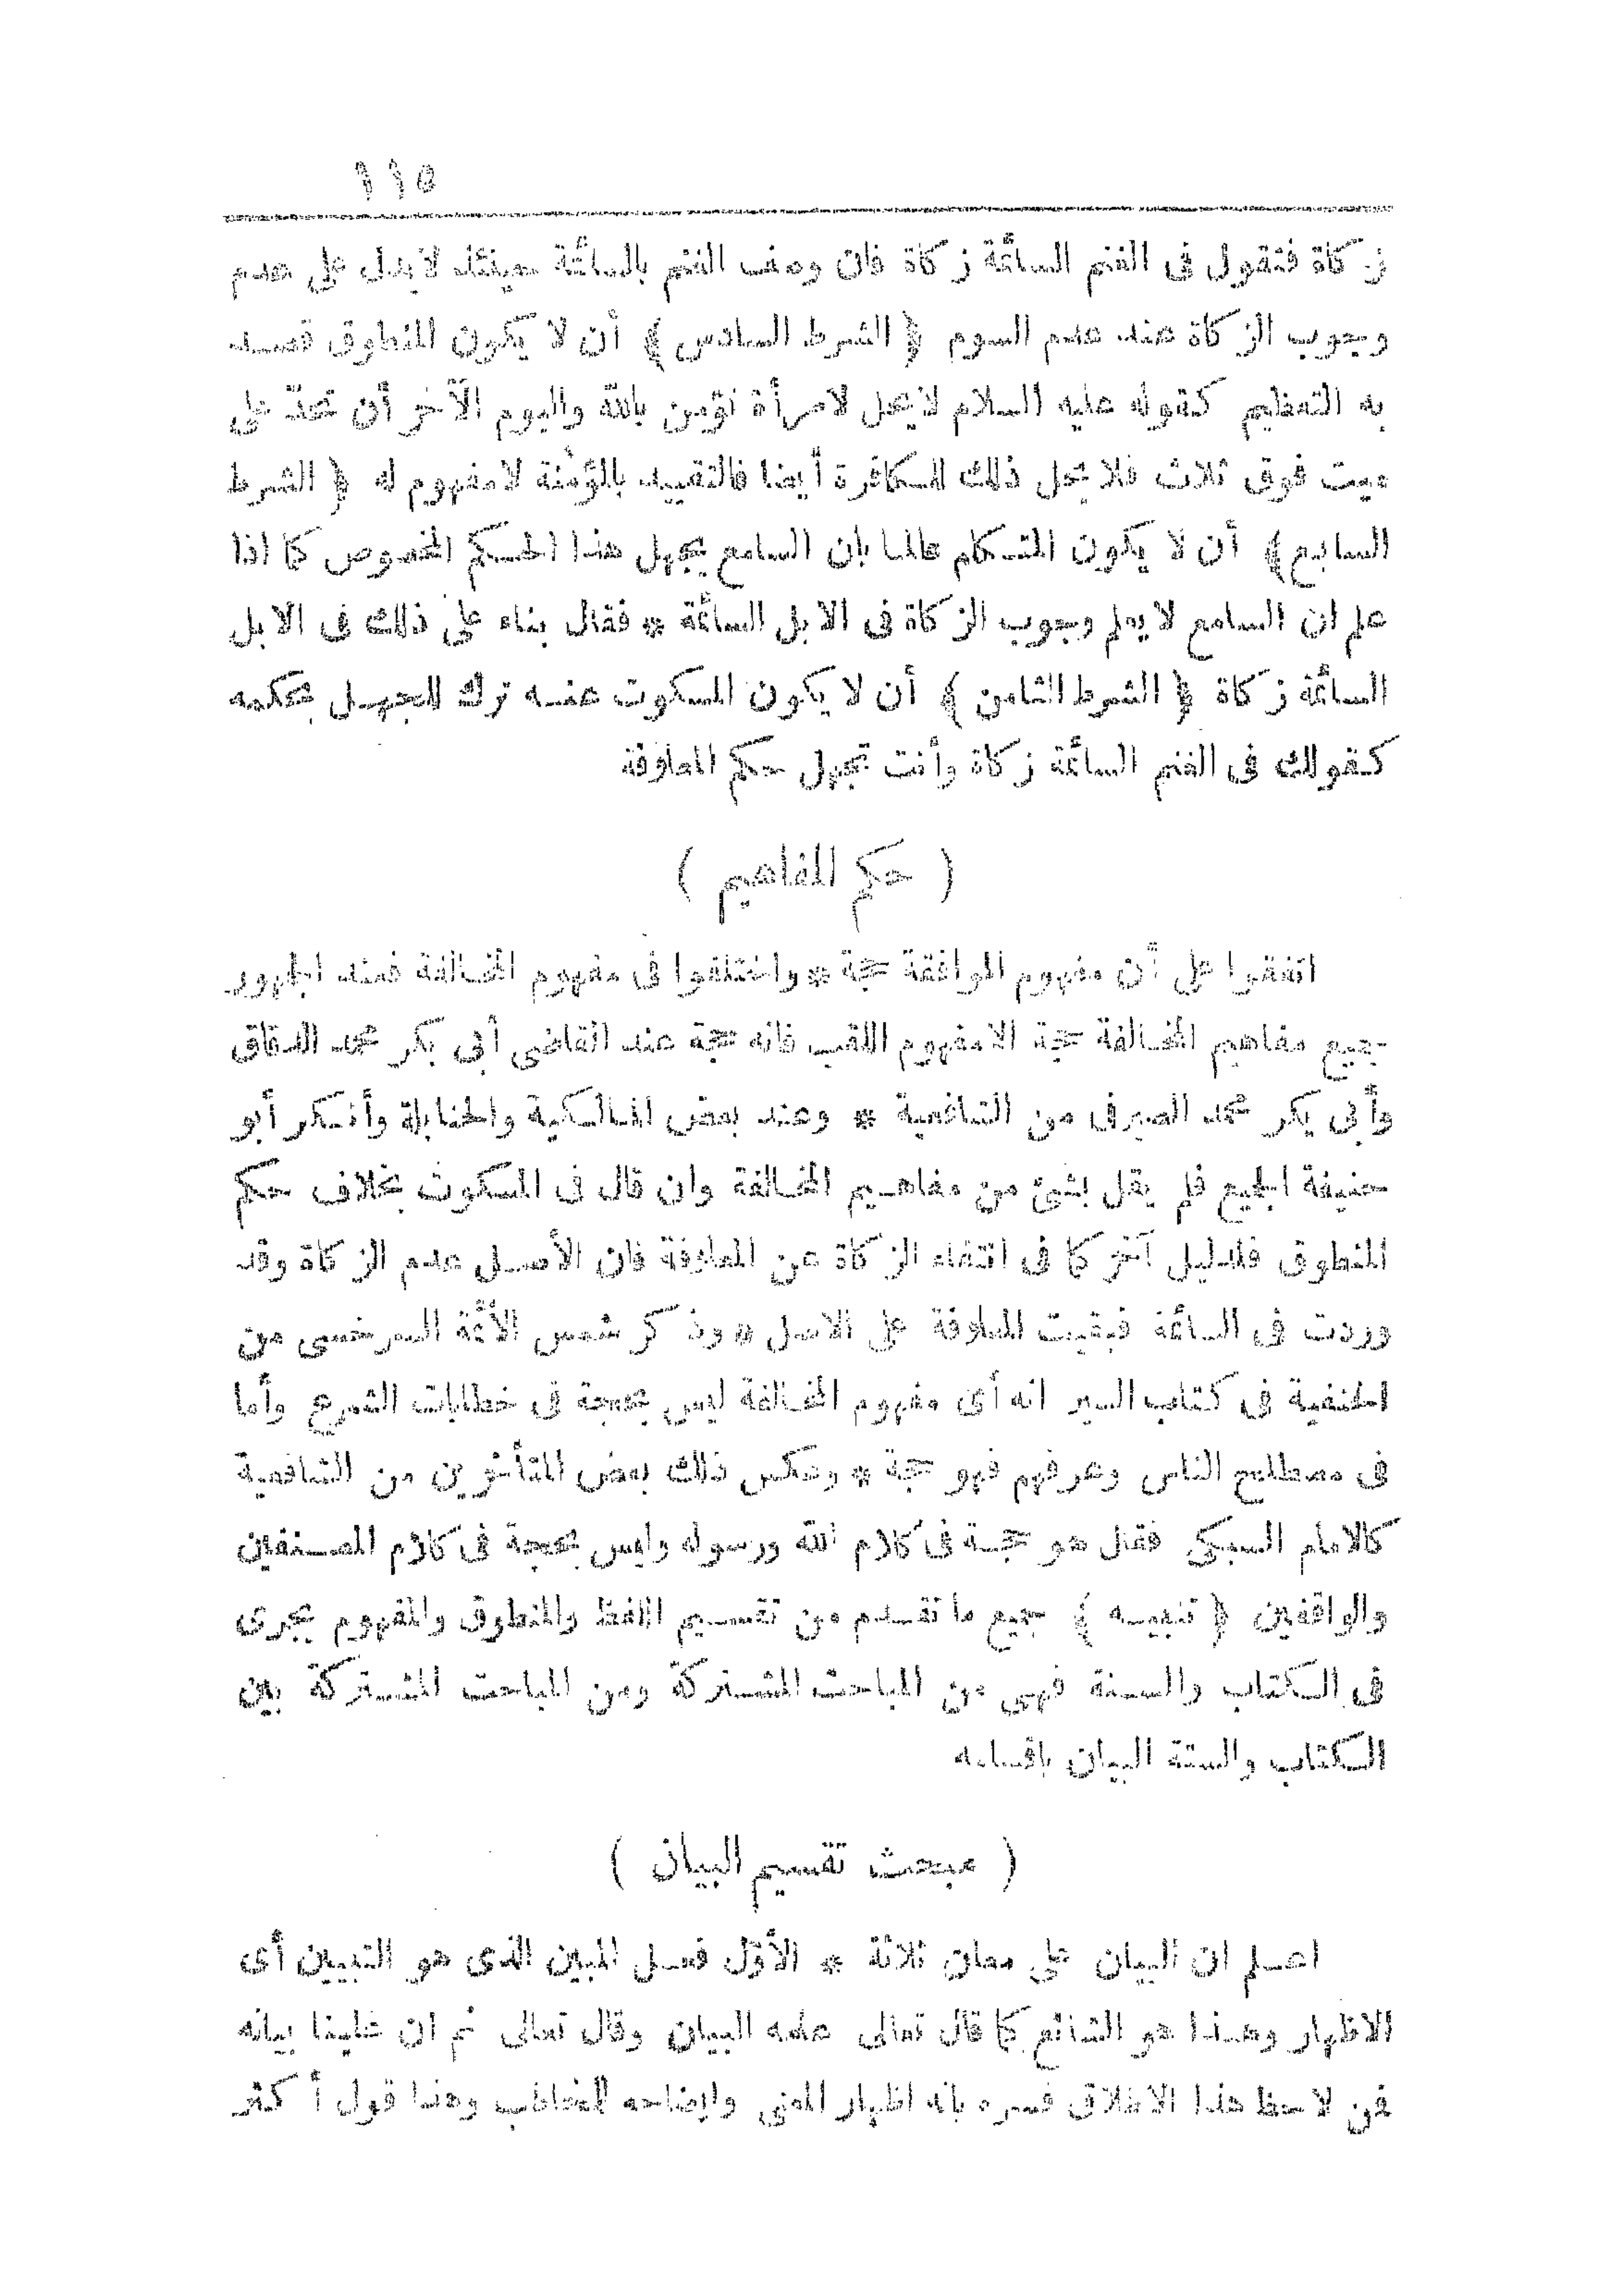 ١١٥
زكاة فتقول فى الغنم السائمة زكاة فان وصف الغنم بالسائمة حينئذ لا يدل على عدم
وجوب الزكاة عند عدم السوم ﴿ الشرط السادس ﴾ أن لا يكون المنطوق قصد
به التعظيم كقوله عليه السلام لا يحل لامرأة تؤمن بالله واليوم الآخر أن تحدّ على
ميت فوق ثلاث فلا يحل ذلك للكافرة أيضا فالتقييد بالمؤمنة لامفهوم له ﴿ الشرط
السابع ﴾ أن لا يكون المتكلم عالما بان السامع يجهل هذا الحكم المخصوص كما اذا
علم ان السامع لا يعلم وجوب الزكاة فى الابل السائمة * فقال بناء على ذلك فى الابل
السائمة زكاة ﴿ الشرط الثامن ﴾ أن لا يكون المسكوت عنه ترك للجهل بحكمه
كقولك فى الغنم السائمة زكاة وأنت تجهل حكم المعلوفة
( حكم المفاهيم )
اتفقوا على أن مفهوم الموافقة حجة * واختلفوا فى مفهوم المخالفة فعند الجمهور
جميع مفاهيم المخالفة حجة الا مفهوم اللقب فانه حجة عند القاضى أبى بكر محمد الدقاق
وأبى بكر محمد الصيرفى من الشافعية * وعند بعض المالكية والحنابلة وأنكر أبو
حنيفة الجميع فلم يقل بشئ من مفاهيم المخالفة وان قال فى المسكوت بخلاف حكم
المنطوق فلدليل آخر كما فى انتفاء الزكاة عن المعلوفة فان الأصل عدم الزكاة وقد
وردت فى السائمة فبقيت المعلوفة على الاصل * وذكر شمس الأئمة السرخسى من
الحنفية فى كتاب السير انه أى مفهوم المخالفة ليس بحجة فى خطابات الشرع وأما
فى مصطلح الناس وعرفهم فهو حجة * وعكس ذلك بعض المتأخرين من الشافعية
كالامام السبكى فقال هو حجة فى كلام الله ورسوله وليس بحجة فى كلام المصنفين
والواقفين ﴿ تنبيه ﴾ جميع ما تقدم من تقسيم اللفظ والمنطوق والمفهوم يجرى
فى الكتاب والسنة فهى من المباحث المشتركة ومن المباحث المشتركة بين
الكتاب والسنة البيان باقسامه
( مبحث تقسيم البيان )
اعلم ان البيان على معان ثلاثة * الأوّل فعل المبين الذى هو التبيين أى
الاظهار وهذا هو الشائع كما قال تعالى علمه البيان وقال تعالى ثم ان علينا بيانه
فمن لاحظ هذا الاطلاق فسره بانه اظهار المعنى وايضاحه للمخاطب وهذا قول أكثر